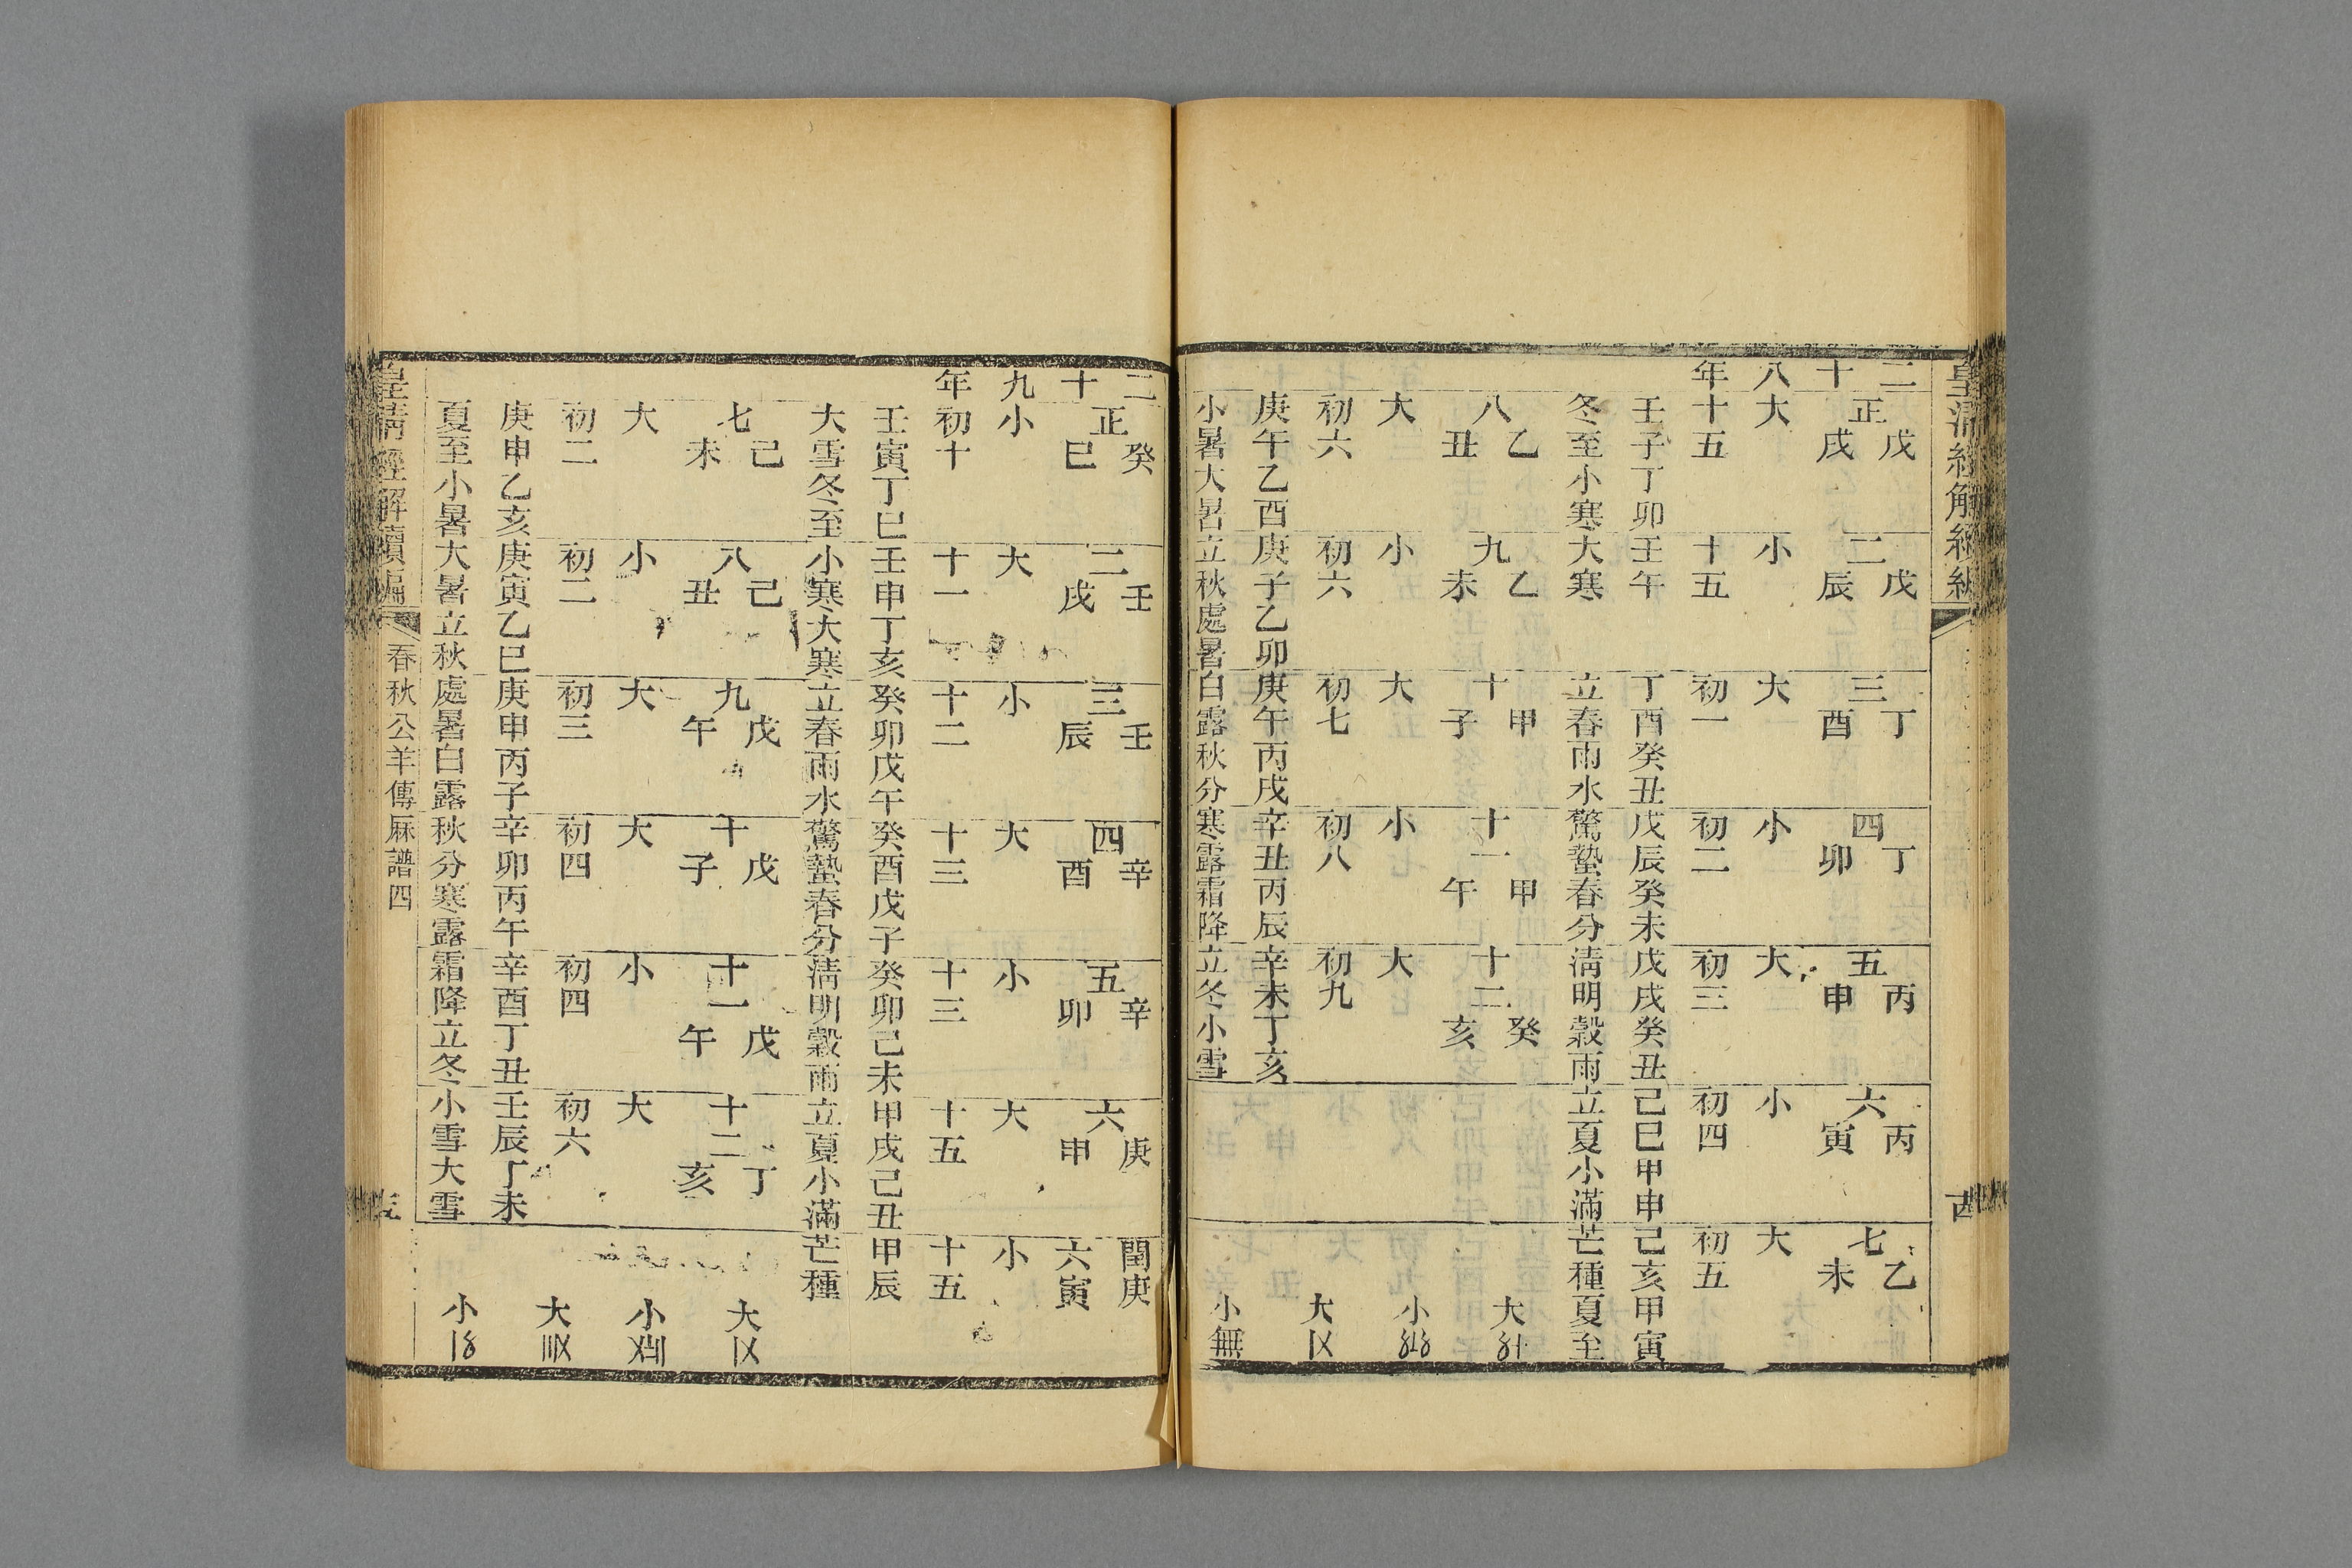 二十八年
正 戊戌 大 十五 壬子丁卯 冬至小寒
二 戊辰 小 十五 壬午 大寒
三 丁酉 大 初一 丁酉癸丑 立春雨水
四 丁卯 小 初二 戊辰癸未 驚蟄春分
五 丙申 大 初三 戊戌癸丑 淸明穀雨
六 丙寅 小 初四 己巳甲申 立夏小滿
七 乙未 大 初五 己亥甲寅 芒種夏至
八 乙丑 大 初六 庚午乙酉 小暑大暑
九 乙未 小 初六 庚子乙卯 立秋處暑
十 甲子 大 初七 庚午丙戌 白露秋分
十一 甲午 小 初八 辛丑丙辰 寒露霜降
十二 癸亥 大 初九 辛未丁亥 立冬小雪
大
小
大〡〤
小無
二十九年
正 癸巳 小 初十 壬寅丁巳 大雪冬至
二 壬戌 大 十一 壬申丁亥 小寒大寒
三 壬辰 小 十二 癸卯戊午 立春雨水
四 辛酉 大 十三 癸酉戊子 驚蟄春分
五 辛卯 小 十三 癸卯己未 淸明穀雨
六 庚申 大 十五 甲戌己丑 立夏小滿
閏六 庚寅 小 十五 甲辰 芒種
七 己未 大 初二 庚申乙亥 夏至小暑
八 己丑 小 初二 庚寅乙巳 大暑立秋
九 戊午 大 初三 庚申丙子 處暑白露
十 戊子 大 初四 辛卯丙午 秋分寒露
十一 戊午 小 初四 辛酉丁丑 霜降立冬
十二 丁亥 大 初六 壬辰丁未 小雪大雪
大〡〤
小
大
小
皇淸經解續編
春秋公羊傳厤譜四